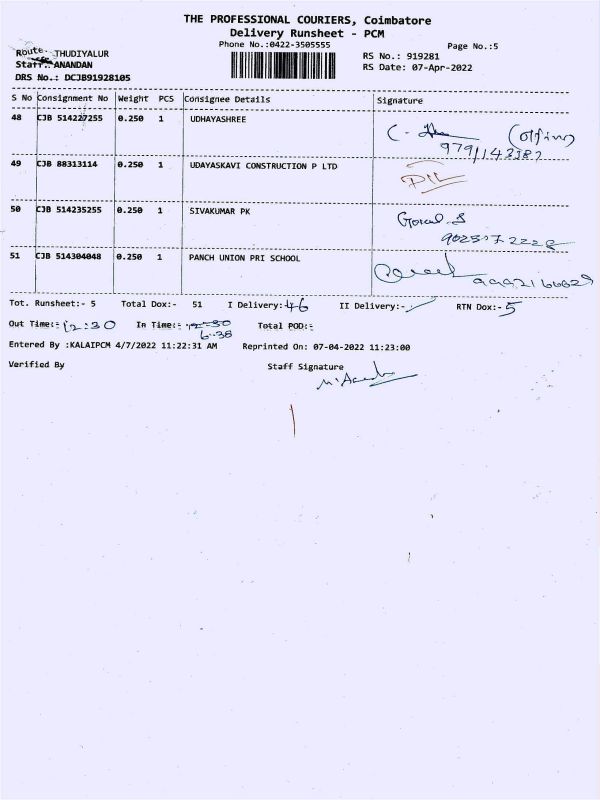 THE PROFESSIONAL COURIERS, Coimbatore
Delivery Runsheet - PCM
Phone No.:0422-3505555
Page No.:5
Route. THUDIYALUR
RS No.: 919281
Staff.. ANANDAN
RS Date: 07-Apr-2022
DRS No.: DCJB91928105
S No Consignment No Weight PCS Consignee Details Signature
48 CJB 514227255 0.250 1 UDHAYASHREE
49 CJB 88313114 0.250 1 UDAYASKAVI CONSTRUCTION P LTD
50 CJB 514235255 0.250 1 SIVAKUMAR PK
51 CJB 514304048 0.250 1 PANCH UNION PRI SCHOOL
Tot. Runsheet:- 5 Total Dox:- 51 I Delivery: 46 II Delivery:- RTN Dox:- 5
Out Time:- 12:30 In Time:- Total POD:-
6.38
Entered By :KALAIPCM 4/7/2022 11:22:31 AM Reprinted On: 07-04-2022 11:23:00
Verified By Staff Signature